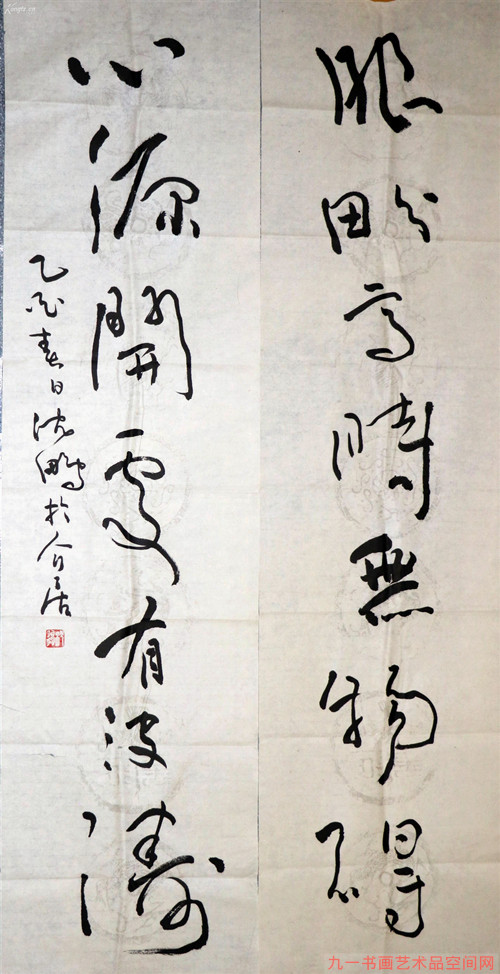 眼畍高時無物碍
心源開處有波濤
乙酉春日沈鵬於介居
九一书画艺术品空间网